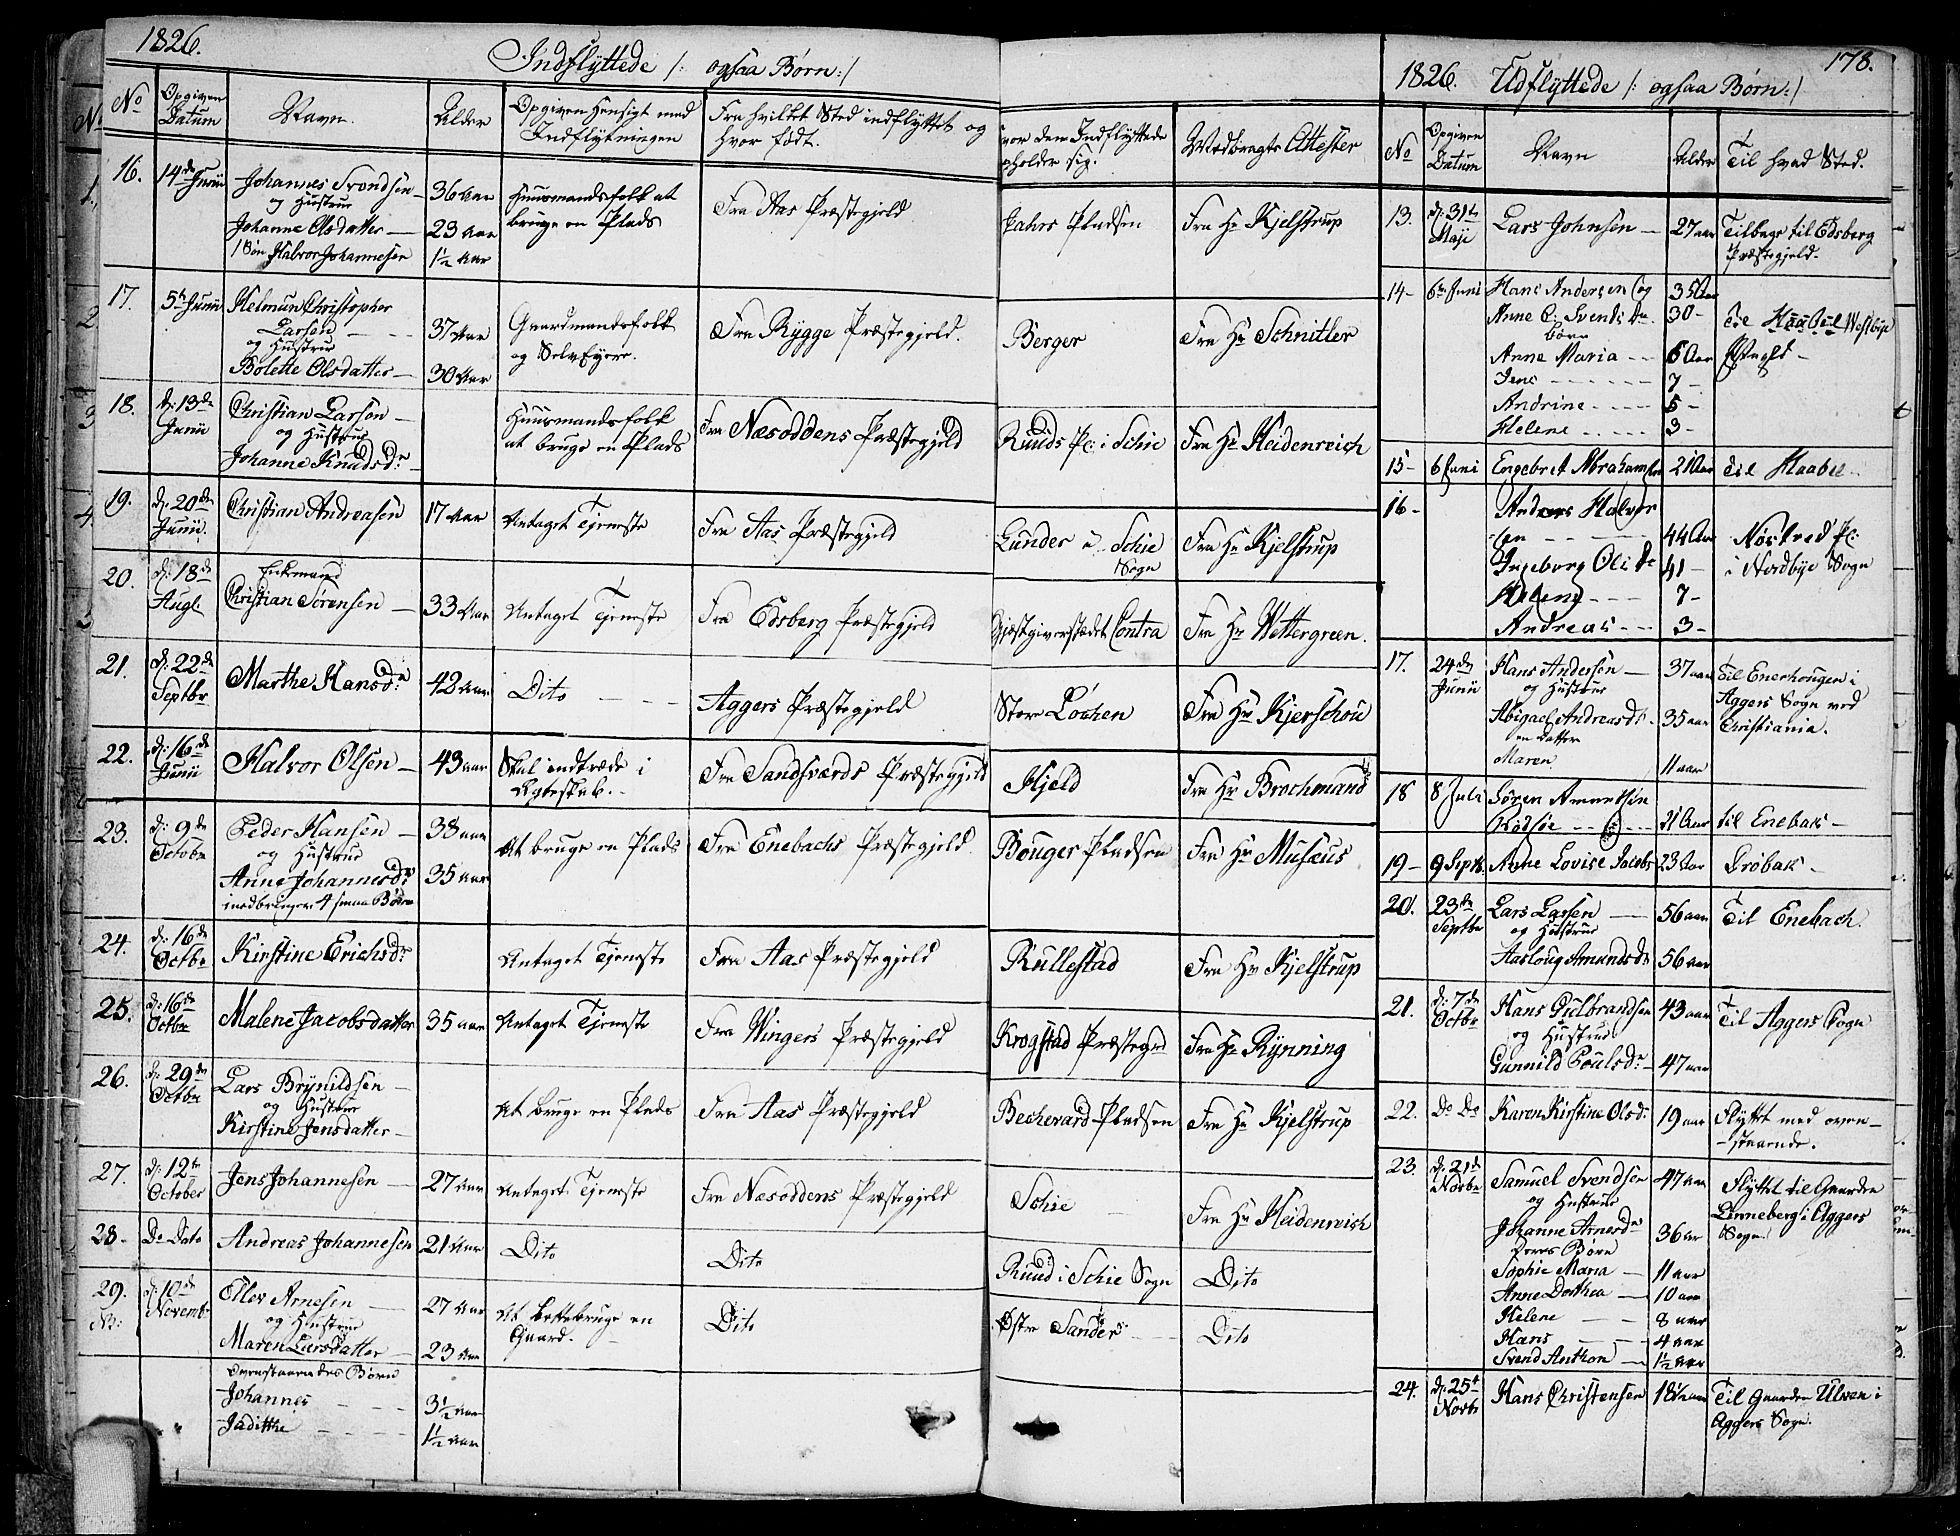 1826. Indflyttede /: ogsaa Børn:/
No Opgiven Datum Navn. Alder Opgiven Hensigt med Indflytningen Fra hvilket Sted indflyttet og hvor født. hvor den Indflyttede opholder sig. Medbragte Attester
16. 14de Junii Johannes Svendsen 36 Aar Huusmandsfolk at Fra Aas Præstegjeld Pladsen Fra Hr Kjelstrup
og Hustrue bruge en Plads
Johanne Olsdatter — 23 Aar
1 Søn Halvor Johannesen 1½ Aar
17. 5te Junii Helmun Christopher
Larsen 37 Aar Gaardmandsfolk Fra Rygge Præstegjeld. Berger Fra Hr Schnitler
og Hustrue og Selv Eyere.
Bolette Olsdatter — 30 Aar
18. d: 13de Junii Christian Larsen — Huusmandsfolk Fra Næsoddens Præstegjeld Ruuds Pl: i Schie Fra Hr Heidenreich
og Hustrue at bruge en Plads
Johanne Knudsdr
19. d: 20de Junii. Christian Andreasen 17 Aar Antaget Tjeneste Fra Aas Præstegjeld Lunder i Schie Sogn Fra Hr Kjelstrup
20. d: 18de Augl. Enkemand
Christian Sørensen — 33 Aar Antaget Tjeneste Fra Edsberg Præstegjeld Gjæstgiverstædet Contra Fra Hr Wettergreen.
21. d: 22de Septbr Marthe Hansdr 42 Aar Dito Aggers Præstegjeld Store Løchen Fra Hr Kjerschou
22. d: 16de Junii Halvor Olsen — 43 aar Skal indtræde i Fra Sandsværds Præstegjeld Hjeld Fra Hr Brochmand
Ægteskab.
23. d: 9de Octobr Peder Hansen — 38 aar At bruge en Plads Fra Enebachs Præstegjeld Bouger Pladsen Fra Hr Musæus
og Hustrue
Anne Johannesdr 35 aar
medbringer 4 smaa Børn
24. d: 16de Octbr Kirstine Erichsdr Antaget Tjeneste Fra Aas Præstegjeld Rullestad Fra Hr Kjelstrup
25. d: 16de Octbr Malene Jacobsdatter 35 aar Antaget Tjeneste Fra Wingers Præstegjeld Krogstad Præstegrd Fra Hr Rynning
26. d: 29de Octbr Lars Brynildsen —
og Hustrue At bruge en Plads Fra Aas Præstegjeld Bechevard Pladsen Fra Hr Kjelstrup
Kirstine Jensdatter —
27. d: 12te October Jens Johannesen — 27 Aar Antaget Tjeneste Fra Næsoddens Præstegjeld Schie Fra Hr Heidenreich
28. Do Dato Andreas Johannesen 21 Aar Dito Dito Ruud i Schie Sogn Dito
29. d: 10de Novembr Ellev Arnesen — 27 Aar At bruge en Dito Østre Sander Dito
NB: og Hustrue Gaard.
Maren Larsdatter — 23 Aar
Ovenstaaendes Børn
Johannes 3½ Aar
Jaditthe 1½ Aar
178.
1826. Udflyttede /: ogsaa Børn:/
No Opgiven Datum Navn Alder Til hvad Sted.
13. d: 31te Maji Lars Johnsen — 27 aar Tilbage til Edsberg
Præstegjeld.
14- 6te Juni Hans Andersen og 35 Aar
Anne C: Svends Dr 30- til Haabel Westbye
børn
Anne Maria -- 6 Aar Pregld -
Jens 7-
Andrine 5-
Helene 3-
15- 6 Juni Engebret Abrahamsen 21 Aar til Haabel
16- Anders Halvor
sen 44 Aar Nøstved Pl:
Ingeborg Oli Dr 41- i Nordbye Sogn
Helene 7-
Andreas 3-
17. 24de Junii Hans Andersen — 37 aar til Enerhougen i
og Hustrue Aggers Sogn ved
Abigael Andreasdr 35 aar Christiania.
en datter
Maren 11 aar
18 8 Juli Søren Amundsen
21 Aar til Enebak -
19- 9 Septb. Anne Lovise Jacobs 23 Aar Drøbak -
20. 23de Septbr Lars Larsen — 56 aar Til Enebach.
og Hustrue
Aasloug Amundsdr 56 aar
21. d: 7de Octbr Hans Gulbrandsen 43 aar Til Aggers Sogn
og Hustrue
Gunnild Poulsdr 47 aar
22. Do Do Karen Kirstine Olsdr 19 aar Flyttet med oven-
-staaende.
23. d: 21de Novbr Samuel Svendsen 47 aar Flyttet til Gaarden
og Hustrue Linneberg i Aggers
Johanne Arnesdr 36 aar Sogn.
Deres Børn
Sophie Maria — 11 aar
Anne Dorthea — 10 aar
Helene 8 aar
Hans 4 aar
Svend Anthon — 1½ aar
24. d: 25de Novbr Hans Christensen 18½ aar Til Gaarden Ulven i
Aggers Sogn.